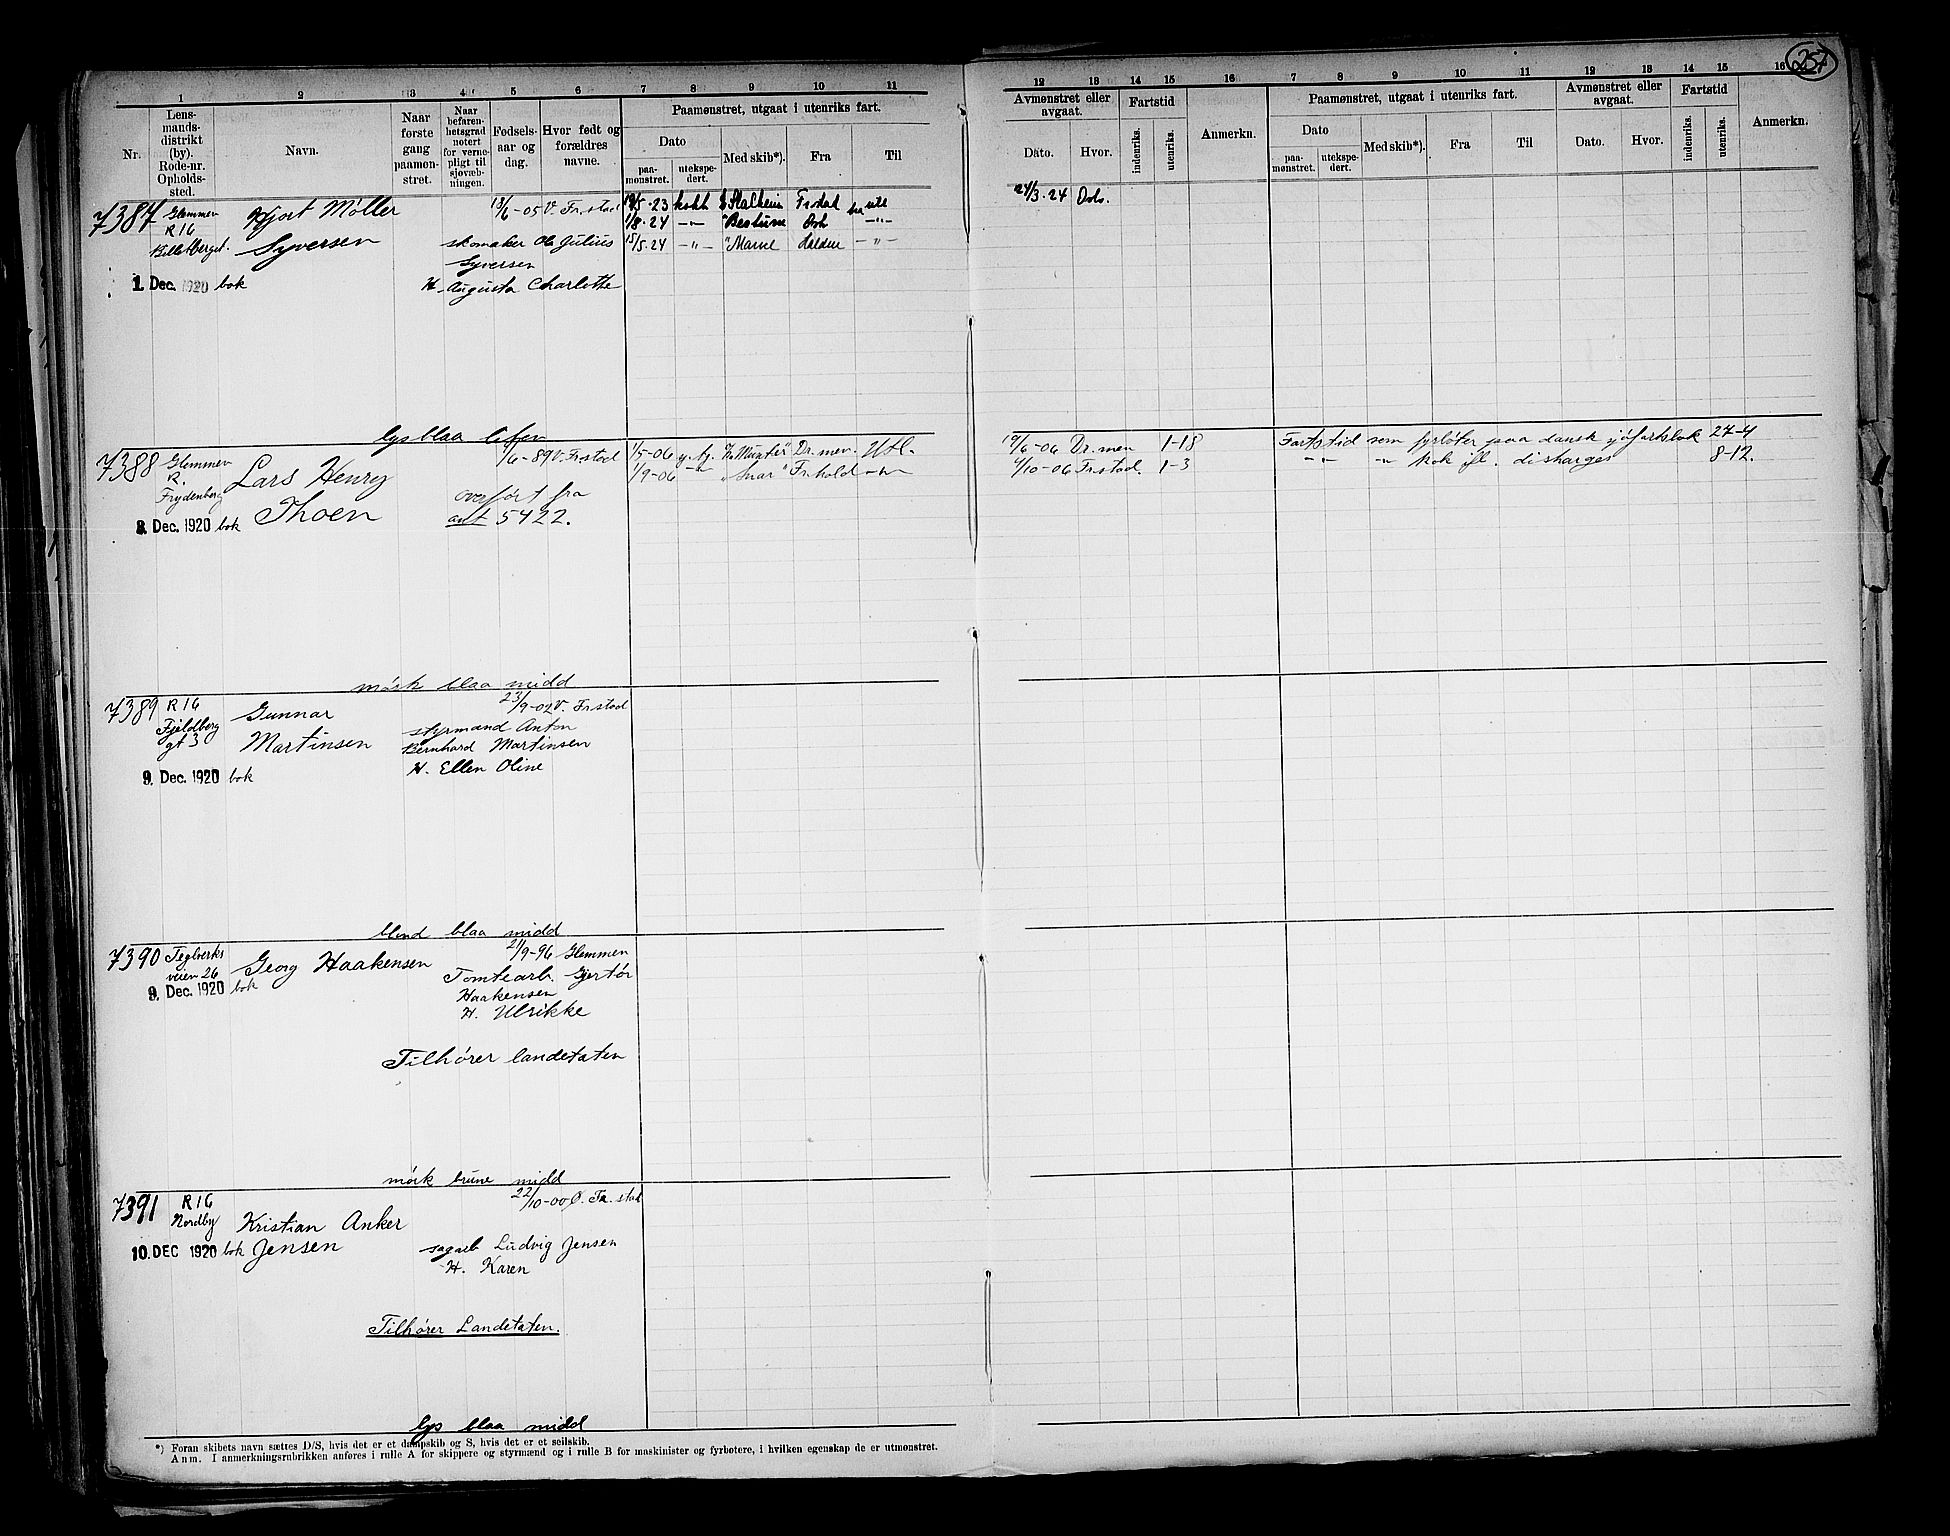 257
1 2 3 4 5 6 7 8 9 10 11
Nr.
Lens-
mands-
distrikt
(by).
Rode-nr.
Opholds-
sted.
Navn.
Naar
første
gang
paamøn-
stret.
Naar
befaren-
hetsgrad
notert
for verne-
pligt til
sjøvæb-
ningen.
Fødsels-
aar og
dag.
Hvor født og
forældres
navne.
Paamønstret, utgaat i utenriks fart.
Dato
paa-
mønstret.
utekspe-
dert.
Med skib*).
Fra
Til
12 13 14 15 16 7 8 9 10 11 12 13 14 15 16
Avmønstret eller
avgaat.
Dato.
Hvor.
Fartstid
indenriks.
utenriks.
Anmerkn.
Paamønstret, utgaat i utenriks fart.
Dato
paa-
mønstret.
utekspe-
dert.
Med skib*).
Fra
Til
Avmønstret eller
avgaat.
Dato.
Hvor.
Fartstid
indenriks.
utenriks.
Anmerkn.
7387 Glemmen Hjort Møller 13/6-05 V. Fr.stad
R16
Syversen skomaker Ole Julius
Syversen
1. Dec. 1920 bok H. Augusta Charlotte
-23 kokk Fr.stad
1/8-24 -"-
15/5.24 -"- Halden -"-
24/3-24 Oslo.
lys blaa liten
7388 Glemmen Lars Henry 1/6-89 V. Fr.stad
R.
Frydenberg Thoen overført fra
8. Dec. 1920 bok ant 5422.
1/5-06 Dr.men. Utl.
1/9-06 -"- Fr.hald -"-
19/6-06 Dr.men 1-18
4/10-06 Fr.stad. 1-3
Fartstid som fyrbøter paa dansk sjøfartsbok 27-4
-"- -"- kok ifl. discharges 8-12.
mørk blaa midd
7389 R16 Gunnar 23/9-02 V. Fr.stad
Fjeldberg
gt 3 Martinsen styrmand Anton
Bernhard Martinsen
9. Dec. 1920 bok H. Ellen Oline
blond blaa midd
7390 Teglverks Georg Haakensen 21/9-96 Glemmen
veien 26 Tomtearb. Gjertør
9. Dec. 1920 bok Haakensen
H. Ulrikke
Tilhører landetaten
mørk brune midd
7391 R16 22/10-00 Ø. Fr.stad
Nordby Kristian Anker
10. DEC 1920 bok Jensen sagarb Ludvig Jensen
H. Karen
Tilhører Landetaten.
lys blaa midd
*) Foran skibets navn sættes D/S, hvis det er et dampskib og S, hvis det er et seilskib.
Anm. I anmerkningsrubrikken anføres i rulle A for skippere og styrmænd og i rulle B for maskinister og fyrbøtere, i hvilken egenskap de er utmønstret.